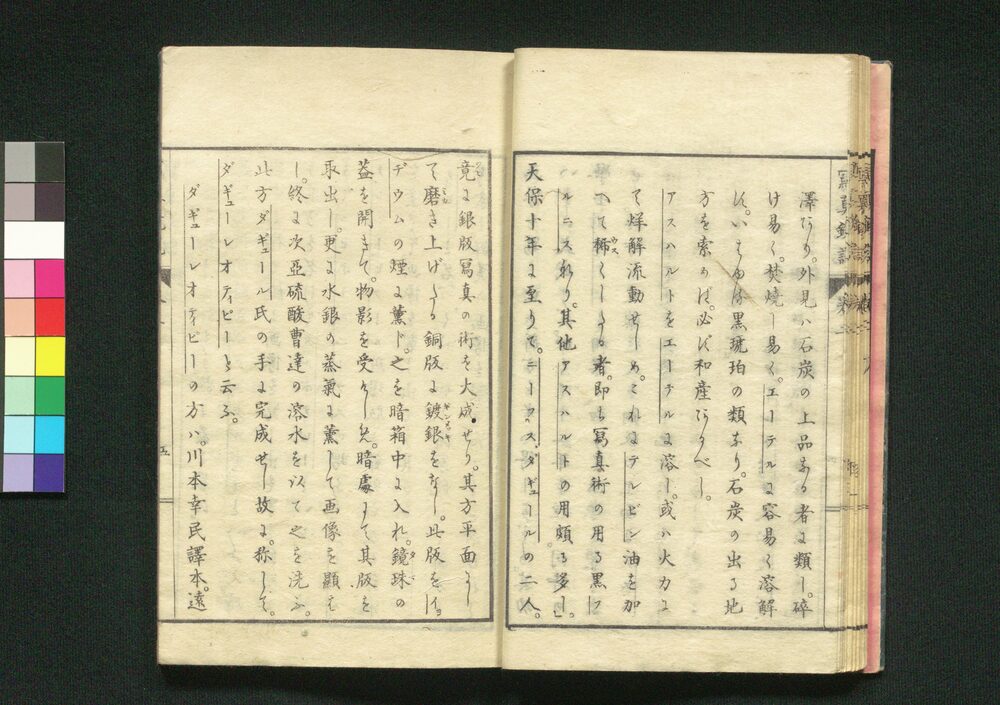 澤アリ。外見ハ石炭の上品なる者に類し。碎
け易く。焚燒し易く。エーテルに容易く溶解
す。いはゆる黒琥珀の類なり。石炭の出る地
方を索めば。必ず和産アルべし。
アスハルトをエーテルに溶し。或ハ火力に
て烊解流動せしめ。これにテレビン油を加
へて稀くしたる者。即ち寫真術の用る黒フ
ルニス也り。其他アスハルトの用頗る多し。
天保十年に至りて。ニーウス。ダギュールの二人。
竟に銀版冩真の術を大成せり。其方平面にし
て磨き上げたる銅版に鍍銀をなし。此版をイ。
ヂウムの煙に薫じ。之を暗箱中に入れ。鏡珠の
蓋を開きて。物影を受けしめ。暗處にて其版を
取出し。更に水銀の蒸氣に薫して画像を顯はし
し。終に次亞硫酸曹達の溶水を以て之を洗ふ。
此方ダギュール氏の手に完成せし故に。称して。
ダギューレオティピーと云ふ。
ダギューレオティピーの方ハ。川本幸民譯本。遠